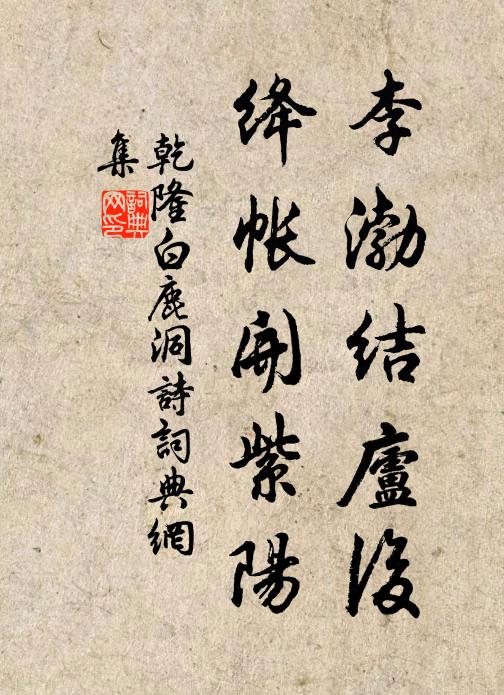 李渤結廬後
絳帳開紫陽
乾隆白鹿洞詩詞典網
集
詞典网印